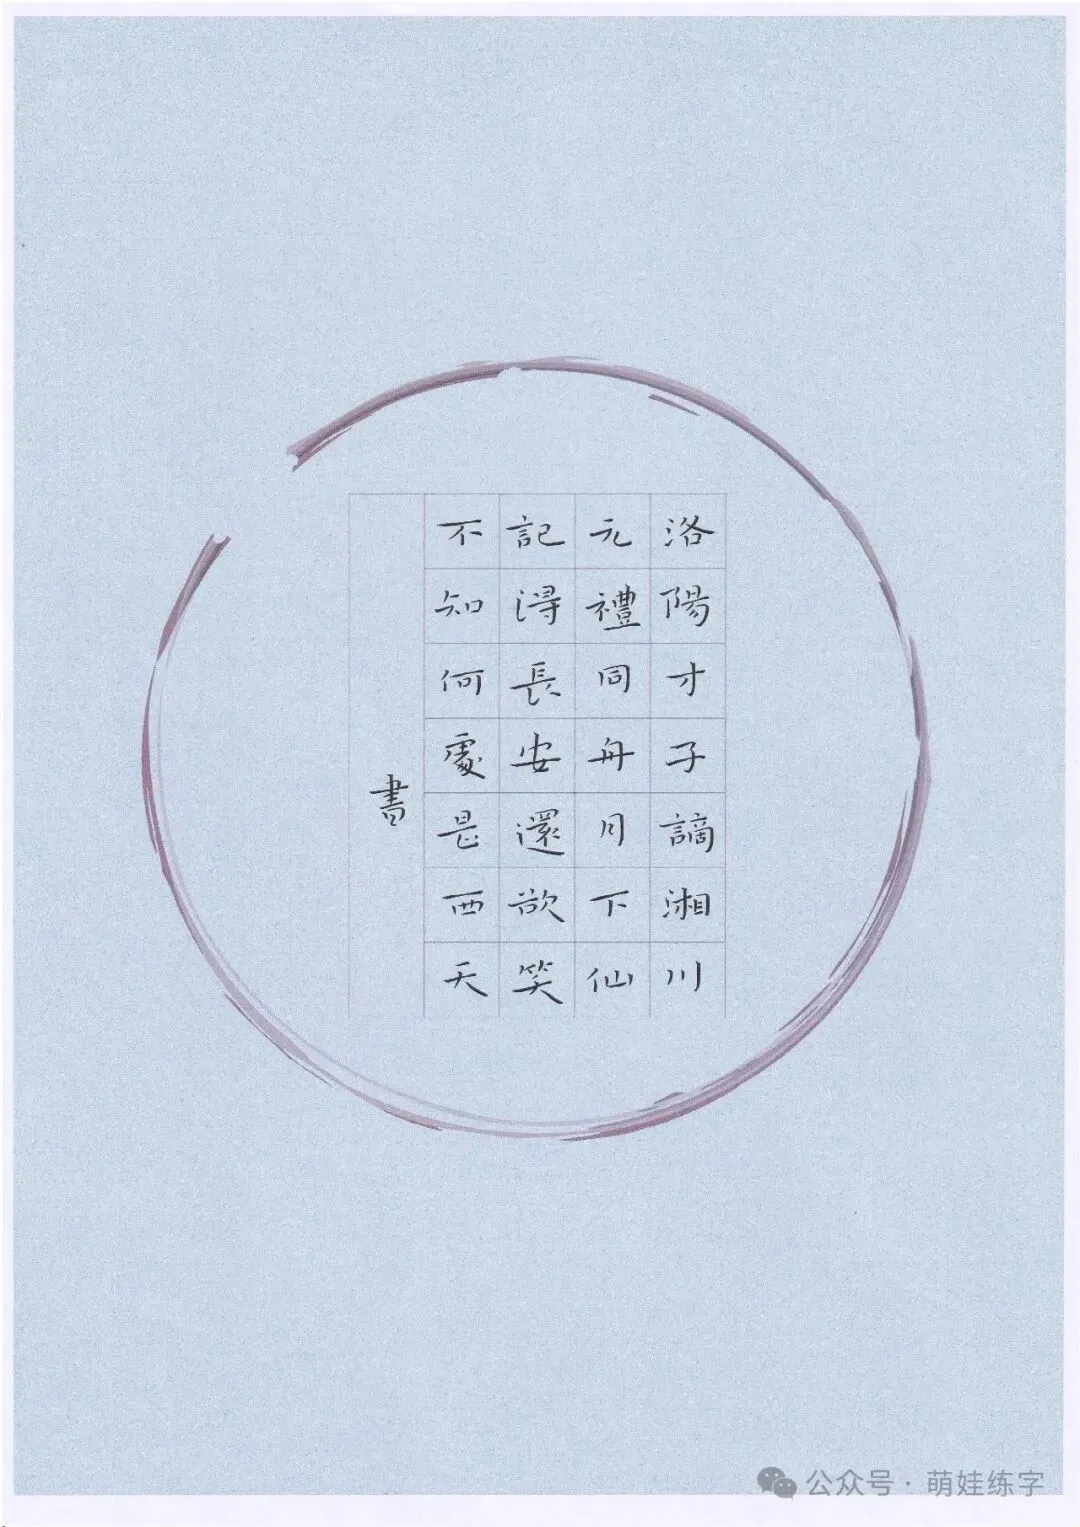 洛陽才子謫湘川
元禮同舟月下仙
記得長安還欲笑
不知何處是西天
書
公众号·萌娃练字